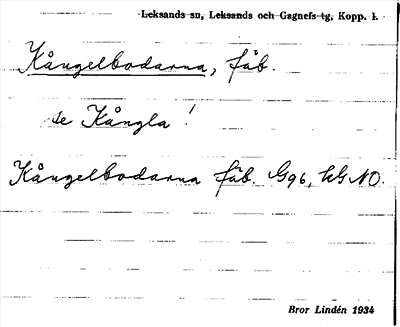 Leksands sn, Leksands och Gagnefs tg, Kopp. l.
Kångelbodarna, fäb.
se Kångla!
Kångelbodarna fäb. G96, LG NO.
Bror Lindén 1934